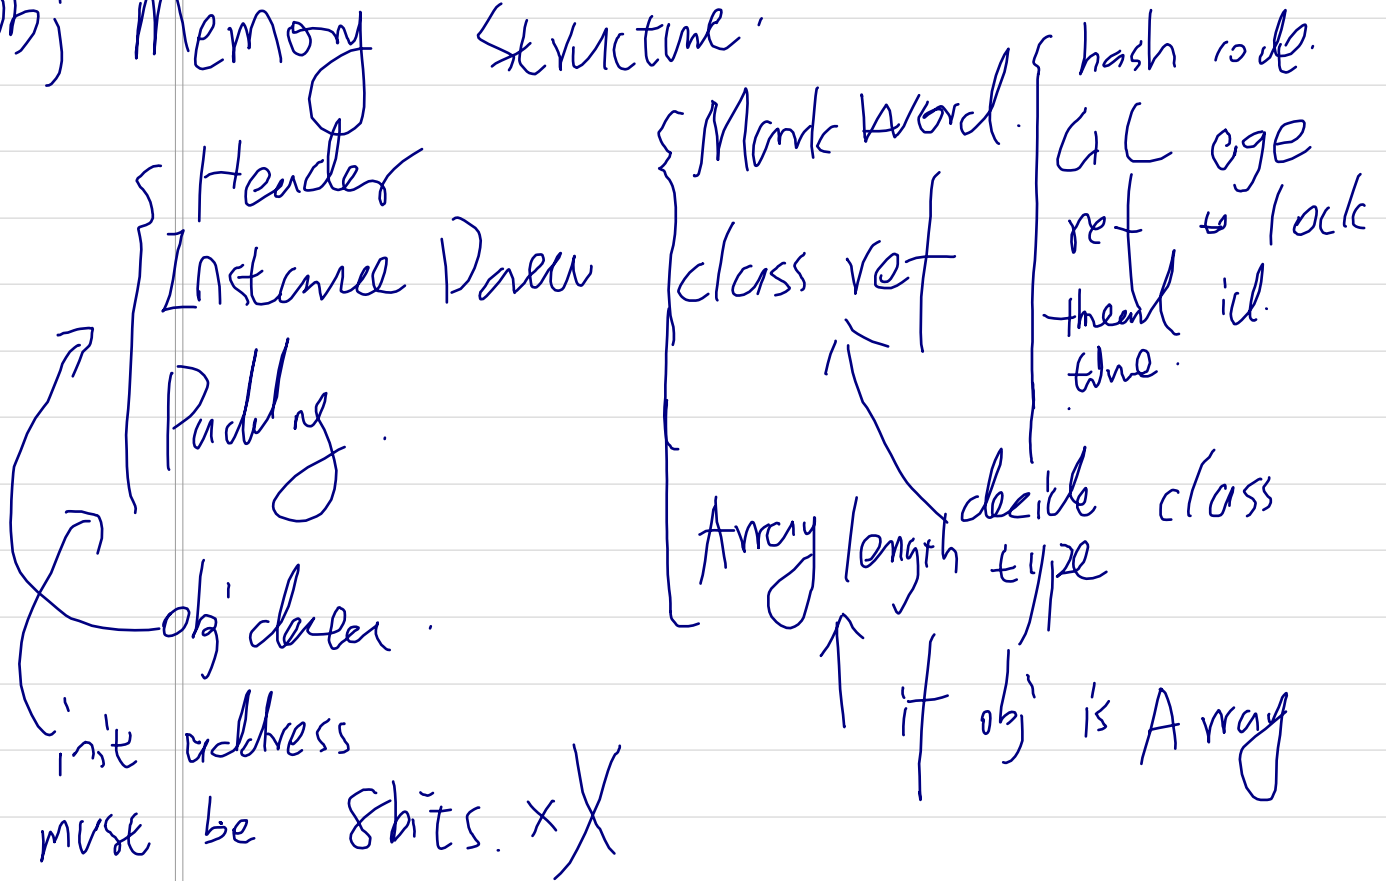 Obj Memory Structure.
Header
Instance Data
Padding.
obj data.
init address
must be 8bits. x X
Mark Word.
class ref
Array length
hash code.
GC age
ref to lock
thread id.
time.
decide class
type
if obj is Array